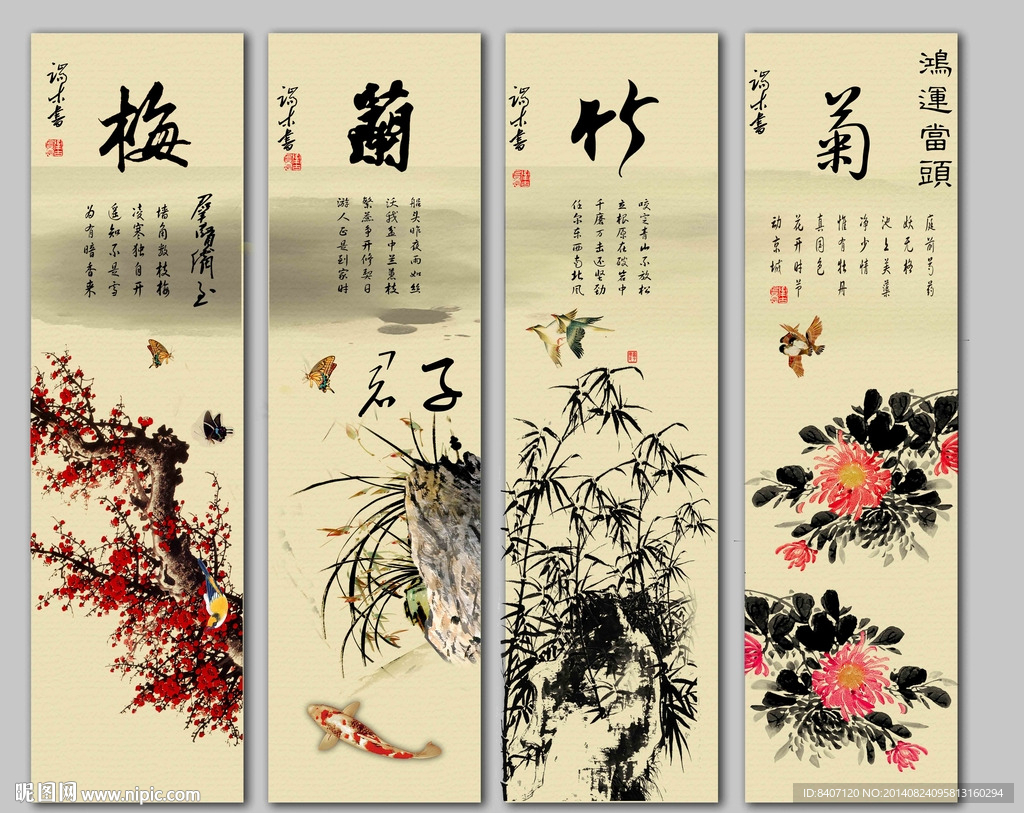 梅
墙角数枝梅
凌寒独自开
遥知不是雪
为有暗香来
蘭
船头昨夜雨如丝
沃我盆中兰蕙枝
繁蕊争开修禊日
游人正是到家时
君子
竹
咬定青山不放松
立根原在破岩中
千磨万击还坚劲
任尔东西南北风
鴻運當頭
菊
庭前芍药
妖无格
池上芙蕖
净少情
惟有牡丹
真国色
花开时节
动京城
昵图网 www.nipic.com
ID:8407120 NO:20140824095813160294